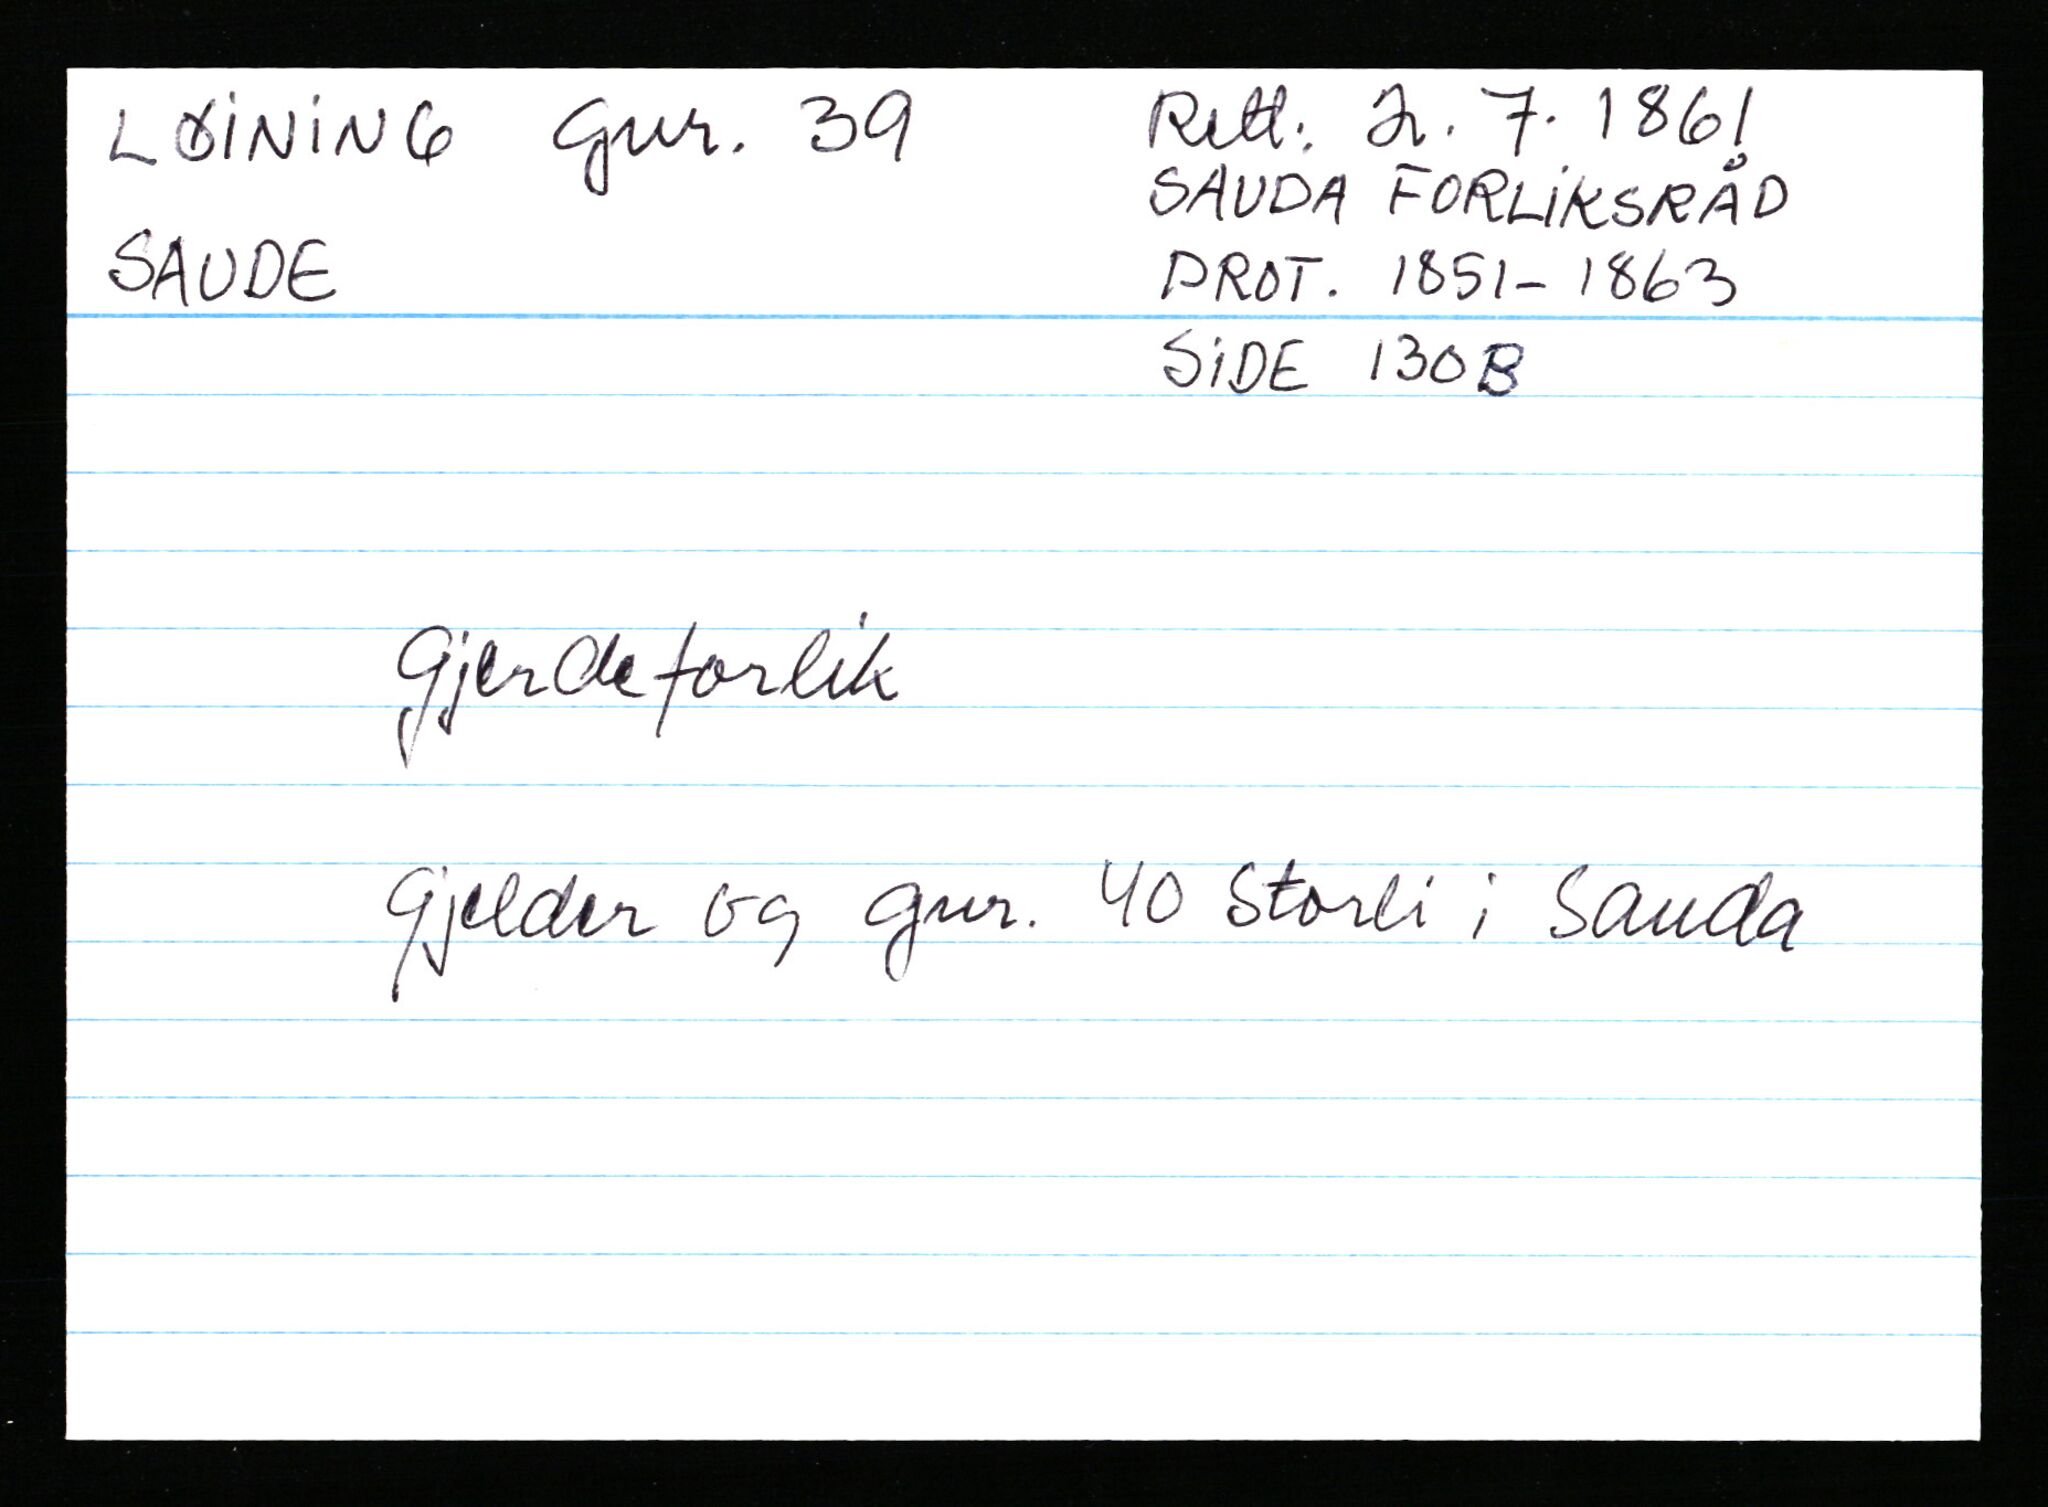 LØINING Gnr. 39
SAUDE
Rett: 2. 7. 1861
SAUDA FORLIKSRÅD
PROT. 1851-1863
SIDE 130B
Gjerdeforlik
Gjelder og gnr. 40 Storli i Sauda